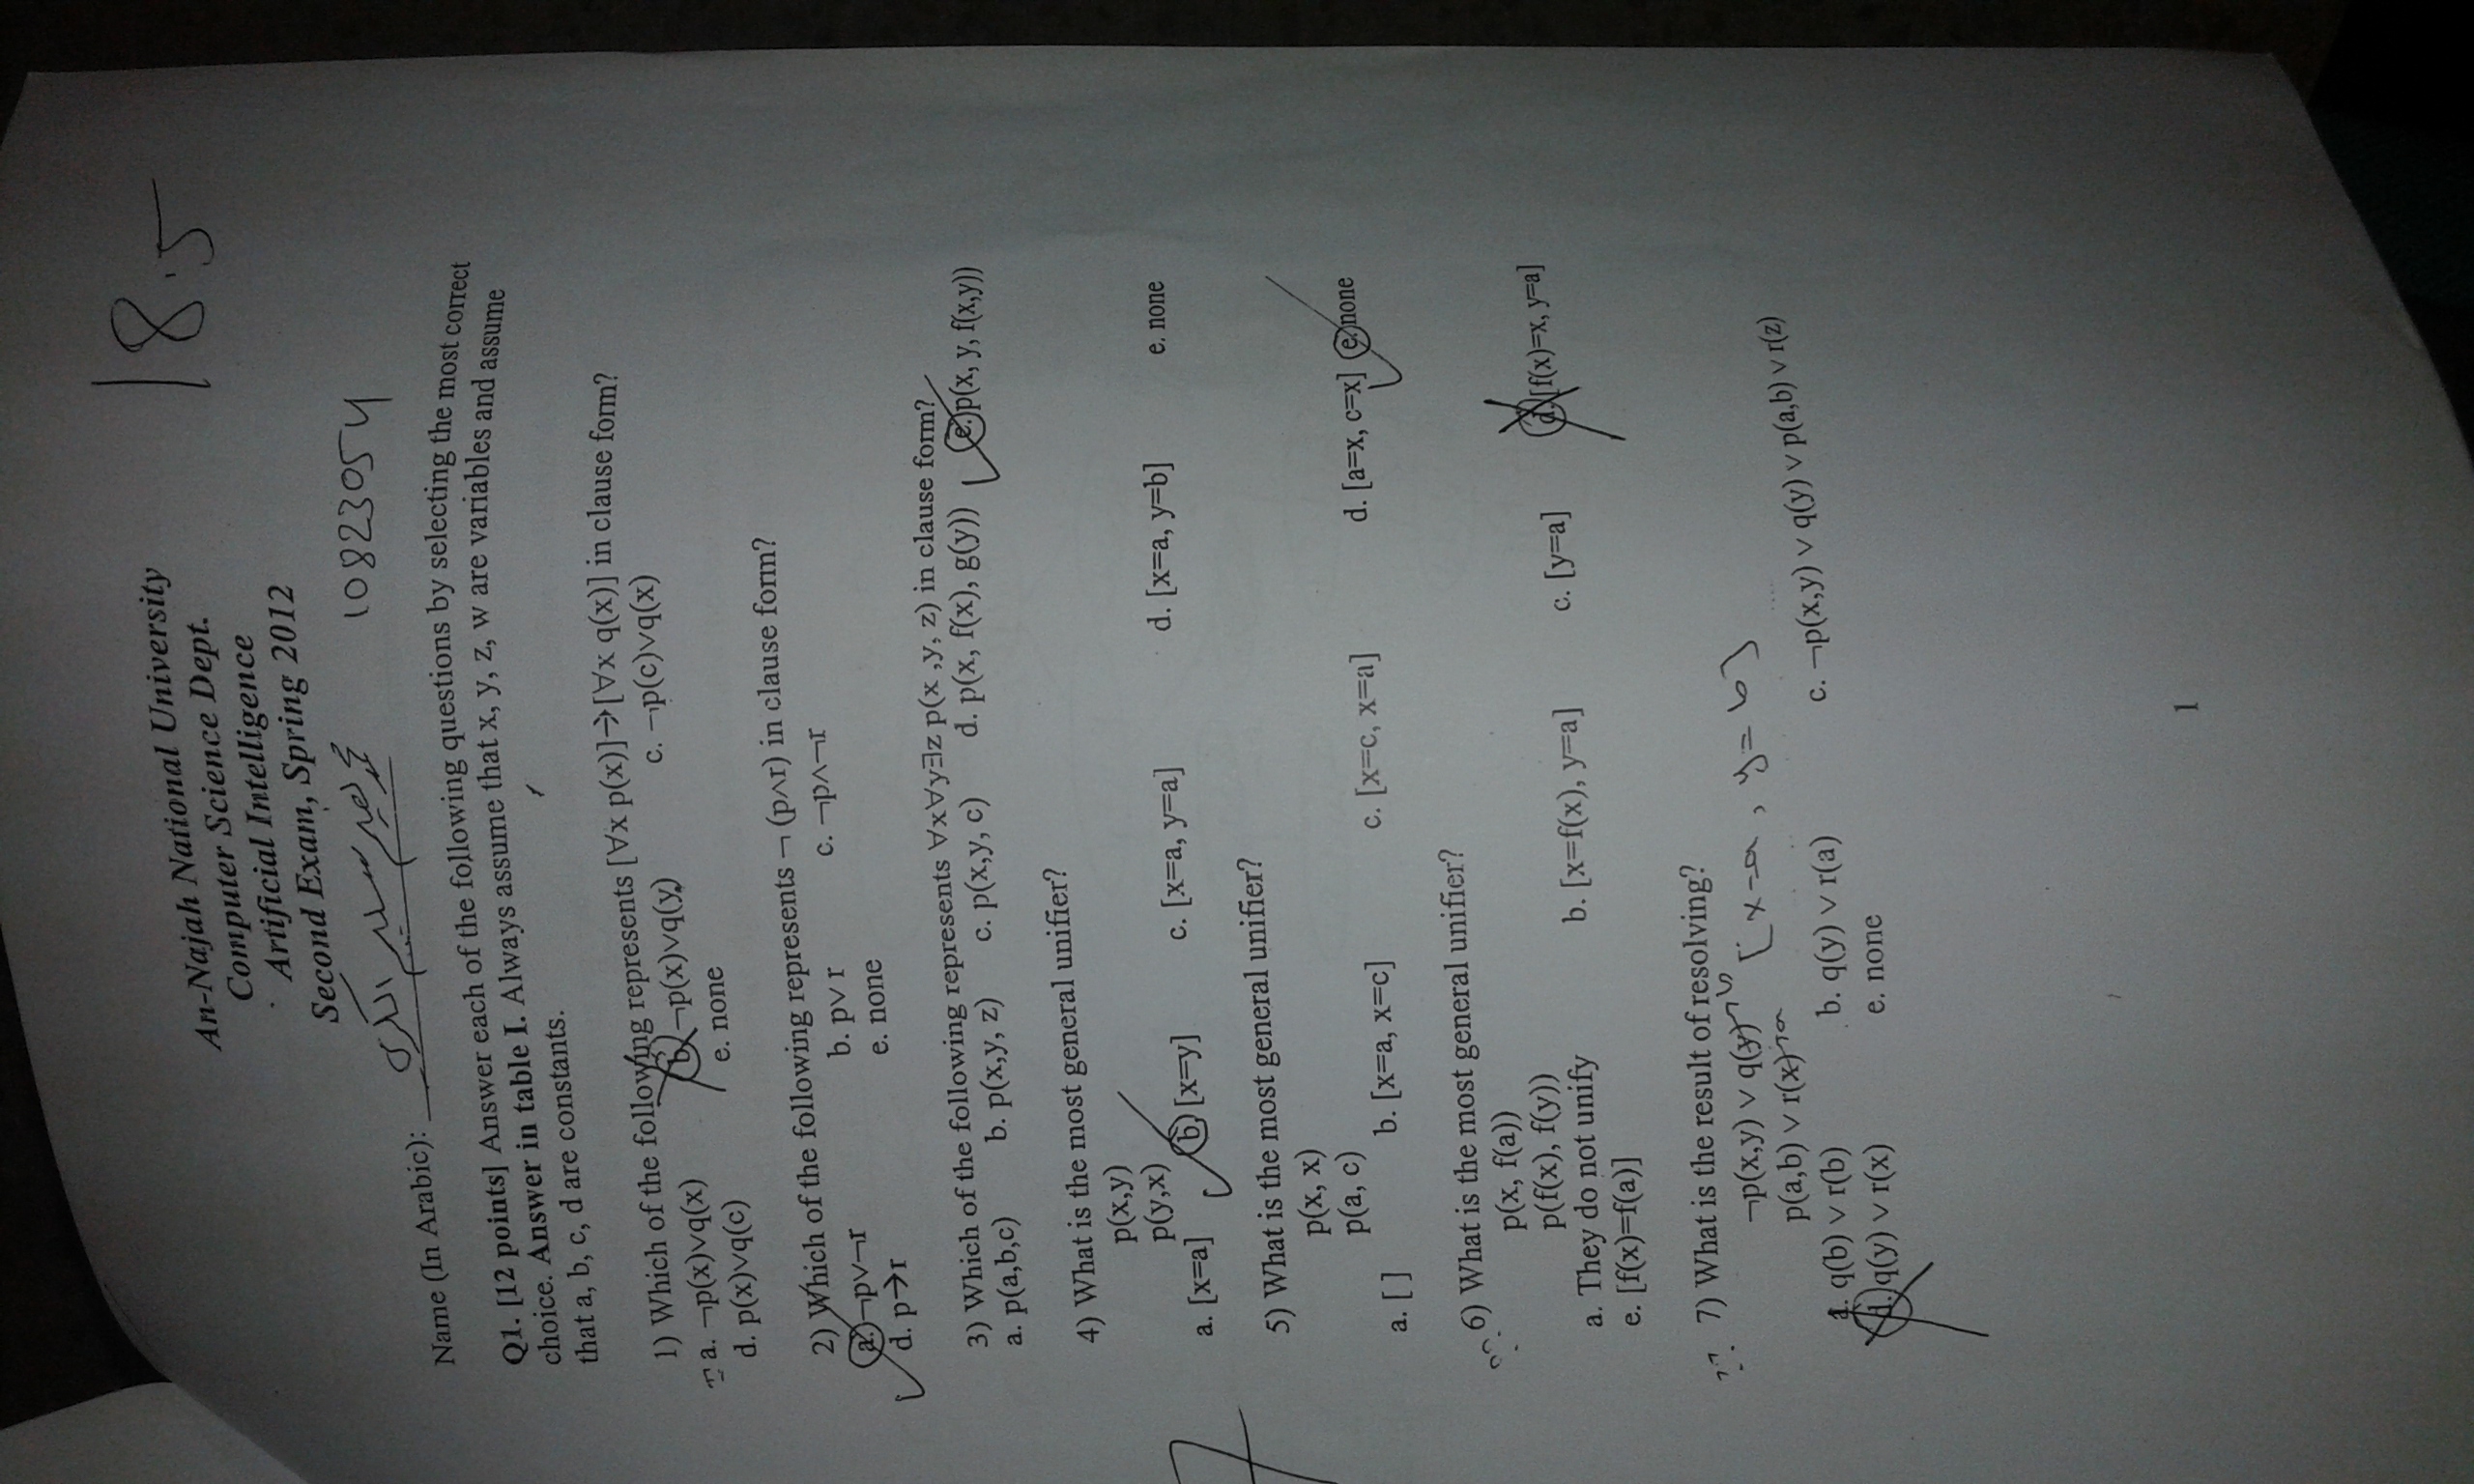 18.5
An-Najah National University
Computer Science Dept.
Artificial Intelligence
Second Exam, Spring 2012
Name (In Arabic): 10823054
Q1. [12 points] Answer each of the following questions by selecting the most correct
choice. Answer in table I. Always assume that x, y, z, w are variables and assume
that a, b, c, d are constants.
1) Which of the following represents [∀x p(x)]→[∀x q(x)] in clause form?
a. ¬p(x)∨q(x) b. ¬p(x)∨q(y) c. ¬p(c)∨q(x)
d. p(x)∨q(c) e. none
2) Which of the following represents ¬(p∧r) in clause form?
a. ¬p∨¬r b. p∨ r c. ¬p∧¬r
d. p→r e. none
3) Which of the following represents ∀x∀y∃z p(x ,y, z) in clause form?
a. p(a,b,c) b. p(x,y, z) c. p(x,y, c) d. p(x, f(x), g(y)) e. p(x, y, f(x,y))
4) What is the most general unifier?
p(x,y)
p(y,x)
a. [x=a] b. [x=y] c. [x=a, y=a] d. [x=a, y=b] e. none
5) What is the most general unifier?
p(x, x)
p(a, c)
a. [ ] b. [x=a, x=c] c. [x=c, x=a] d. [a=x, c=x] e. none
6) What is the most general unifier?
p(x, f(a))
p(f(x), f(y))
a. They do not unify b. [x=f(x), y=a] c. [y=a] d. [f(x)=x, y=a]
e. [f(x)=f(a)]
7) What is the result of resolving?
¬p(x,y) ∨ q(y) b [x=a, y=b]
p(a,b) ∨ r(x) a
a. q(b) ∨ r(b) b. q(y) ∨ r(a) c. ¬p(x,y) ∨ q(y) ∨ p(a,b) ∨ r(z)
d. q(y) ∨ r(x) e. none
7
1